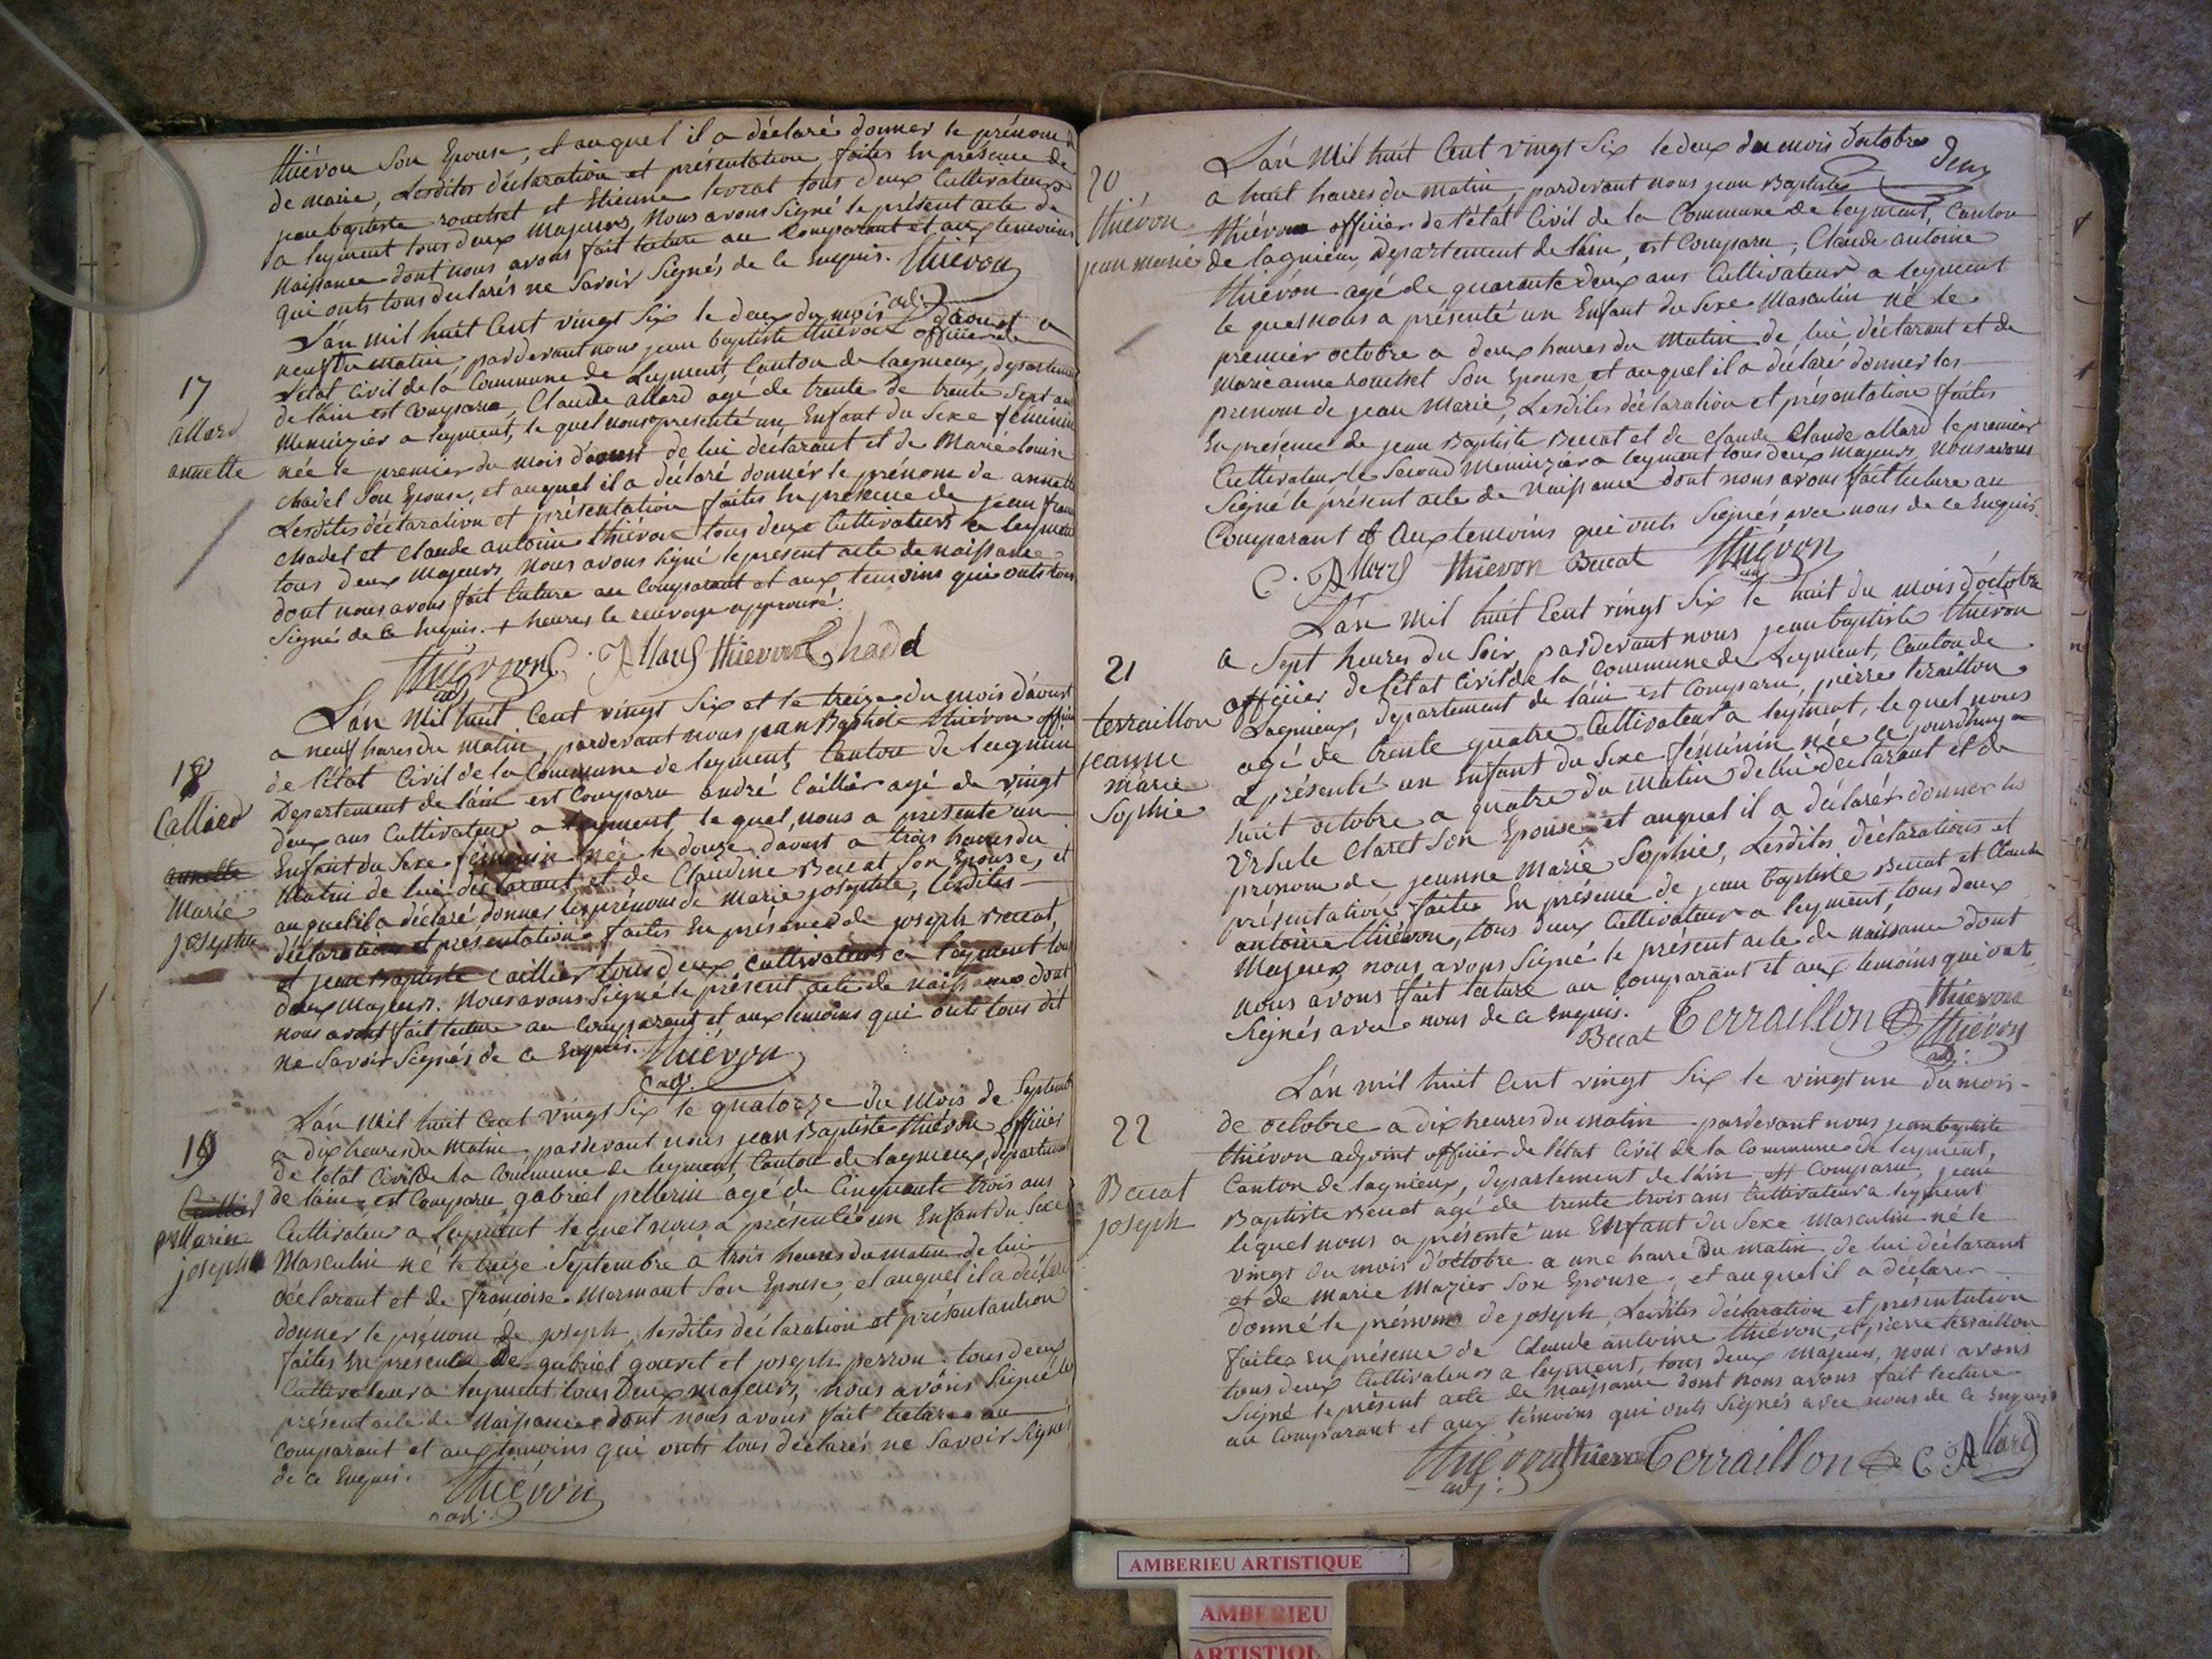 thiévon Son Epouse, et auquel il a déclaré donner le prénom
de marie, Lesdites déclaration et présentation faites En présence de
jean baptiste rouchet et Etienne levrat tous deux Cultivateurs
a leyment tous deux Majeurs, Nous avons Signé le présent acte de
Naissance dont nous avons fait lecture au Comparant et aux temoins
qui onts tous declarés ne Savoir Signés de Ce Enquis. Thiévon
adj.
L'án mil huit Cent vingt Six le deux du mois d'aoust a
neuf + du matin, pardevant nous jean baptiste thiévon officier de
l'état Civil de la Commune de Leyment, Canton de lagnieux, departement
17
de l'ain est Comparu, Claude allard agé de trente de trente Sept ans
allard
Menuizier a leyment, le quel nous a presenté un Enfant du Sexe féminin
annette
née le premier du mois d'aoust de lui déclarant et de Marie louise
chadel Son Epouse, et auquel il a déclaré donnér le prénom de annette
Lesdites déclaration et présentation faites En présence de jean fran
chadel et Claude antoine thiévon tous deux Cultivateurs a leyment
tous deux Majeurs Nous avons Signé le present acte de naissance
dont nous avons fait lecture au Comparant et aux temoins qui onts tous
Signés de Ce Enquis. + heures le renvoye approuvé.
Thiévon C. Allard thievon Chadel
adj
L'án Mil huit Cent vingt Six et le treize du mois d'aoust
a neuf heures du matin, pardevant nous jean Baptiste thiévon officier
18
de l'état Civil de la Commune de leyment, Canton de lagnieu
Callier
Departement de l'ain est Comparu andré Caillier agé de vingt
deux ans Cultivateur a leyment, le quel, nous a présenté un
annette
Enfant du Sexe féminin née le douze d'aoust a trois heures du
Marie
Matin de lui déclarant et de Claudine Beccat Son Epouse, et
auquel il a déclaré donner les prénoms de Marie josephte, Lesdites
josephte
déclaration et présentation faites En présence de joseph Beccat,
et jean Baptiste Caillier tous deux cultivateurs a leyment tous
deux Majeurs. Nous avons Signé le présent acte de naissance dont
nous avons fait lecture au Comparant et aux temoins qui onts tous dit
ne Savoir Signés de Ce Enquis. Thiévon
adj.
L'án Mil huit Cent vingt Six le quatorze du Mois de Septembre
a dix heures du Matin, pardevant nous jean Baptiste thiévon officier
19
de l'état Civil de la Commune de leyment, Canton de lagnieux, departement
Caillier
de l'ain, est Comparu, gabriel pellerin agé de Cinquante trois ans
pellerin
Cultivateur a leyment le quel nous a présenté un Enfant du Sexe
joseph
Masculin né le treize Septembre a trois heures du matin de lui
déclarant et de francoise Mermant Son Epouse, et auquel il a déclaré
donner le prénom de joseph, lesdites déclaration et présentantion
faites En présence De gabriel gouvet et joseph perron tous deux
Cultivateur a leyment tous Deux majeurs, nous avóns Signé le
présent acte de Naissance dont nous avons fait lecture au
Comparant et aux temoins qui onts tous déclarés ne Savoir Signés
de Ce Enquis.
Thiévon
adj.
L'án Mil huit Cent vingt Six le deux du mois d'octobre
deux
20
a huit heures du Matin, pardevant nous jean Baptiste
thiévon
thiévon officier de l'état Civil de la Commune de leyment, Canton
jean marie
de lagnieux, departement de l'ain, est Comparu, Claude antoine
thiévon agé de quarante deux ans Cultivateur a leyment
le quel nous a présenté un Enfant du Sexe Masculin né le
premier octobre a deux heures du Matin de lui déclarant et de
Marie anne rouchet Son Epouse et auquel il a déclaré donner les
prenoms de jean Marie, Lesdites déclaration et présentation faites
En présence de jean Baptiste Beccat et de claude Claude allard le premier
Cultivateur le Second Menuizier a leyment tous deux majeurs, Nous avons
Signé le présent acte de Naissance dont nous avons fait lecture au
Comparant et Aux temoins qui onts Signés avec nous de Ce Enquis.
C. Allard thievon Beccat Thiévon
adj
L'án mil huit Cent vingt Six le huit du mois d'octobre
a Sept heures du Soir, pardevant nous jean baptiste thiévon
21
officier de l'état Civil de la Commune de Leyment, Canton de
terraillon
Lagnieux, departement de l'ain est Comparu, pierre teraillon
jeanne
agé de trente quatre Cultivateur a leyment, le quel nous
marie
a présenté un Enfant du Sexe féminin née ce jourdhuy
Sophie
huit octobre a quatre du matin de lui déclarant et de
Ursule Claret Son Epouse et auquel il a déclarér donner les
prenoms de jeanne Marie Sophie, Lesdites déclarations et
présentation faites En présence de jean baptiste Beccat et Claude
antoine thiévon, tous deux Cultivateur a leyment, tous deux
Majeurs, nous avons Signé le présent acte de naissance dont
nous avons fait lecture au Comparant et aux temoins qui onts
Signés avec nous de Ce Enquis.
Beccat Terraillon thievon
Thiévon
adj.
L'án mil huit Cent vingt Six le vingt un du mois
22
de octobre a dix heures du matin pardevant nous jean baptiste
thiévon adjoint officier de l'état Civil de la Commune de leyment,
Beccat
Canton de lagnieux, departement de l'ain est Comparu, jean
joseph
Baptiste Beccat agé de trente trois ans Cultivateur a leyment
lequel nous a présenté un Enfant du Sexe Masculin né le
vingt du mois d'octobre a une heure du matin de lui déclarant
et de Marie Mazier Son Epouse, et auquel il a déclarer
donné le prénom de joseph, Lesdites déclaration et présentation
faites En présence de Claude antoine thiévon, et pierre terraillon
tous deux Cultivateurs a leyment, tous deux majeurs, nous avons
Signé le présent acte de Naissance dont nous avons fait lecture
au Comparant et aux témoins qui onts Signés avec nous de Ce Enquis
Thiévon thievon Terraillon C. Allard
adj.
AMBERIEU ARTISTIQUE
AMBERIEU
ARTISTIQU